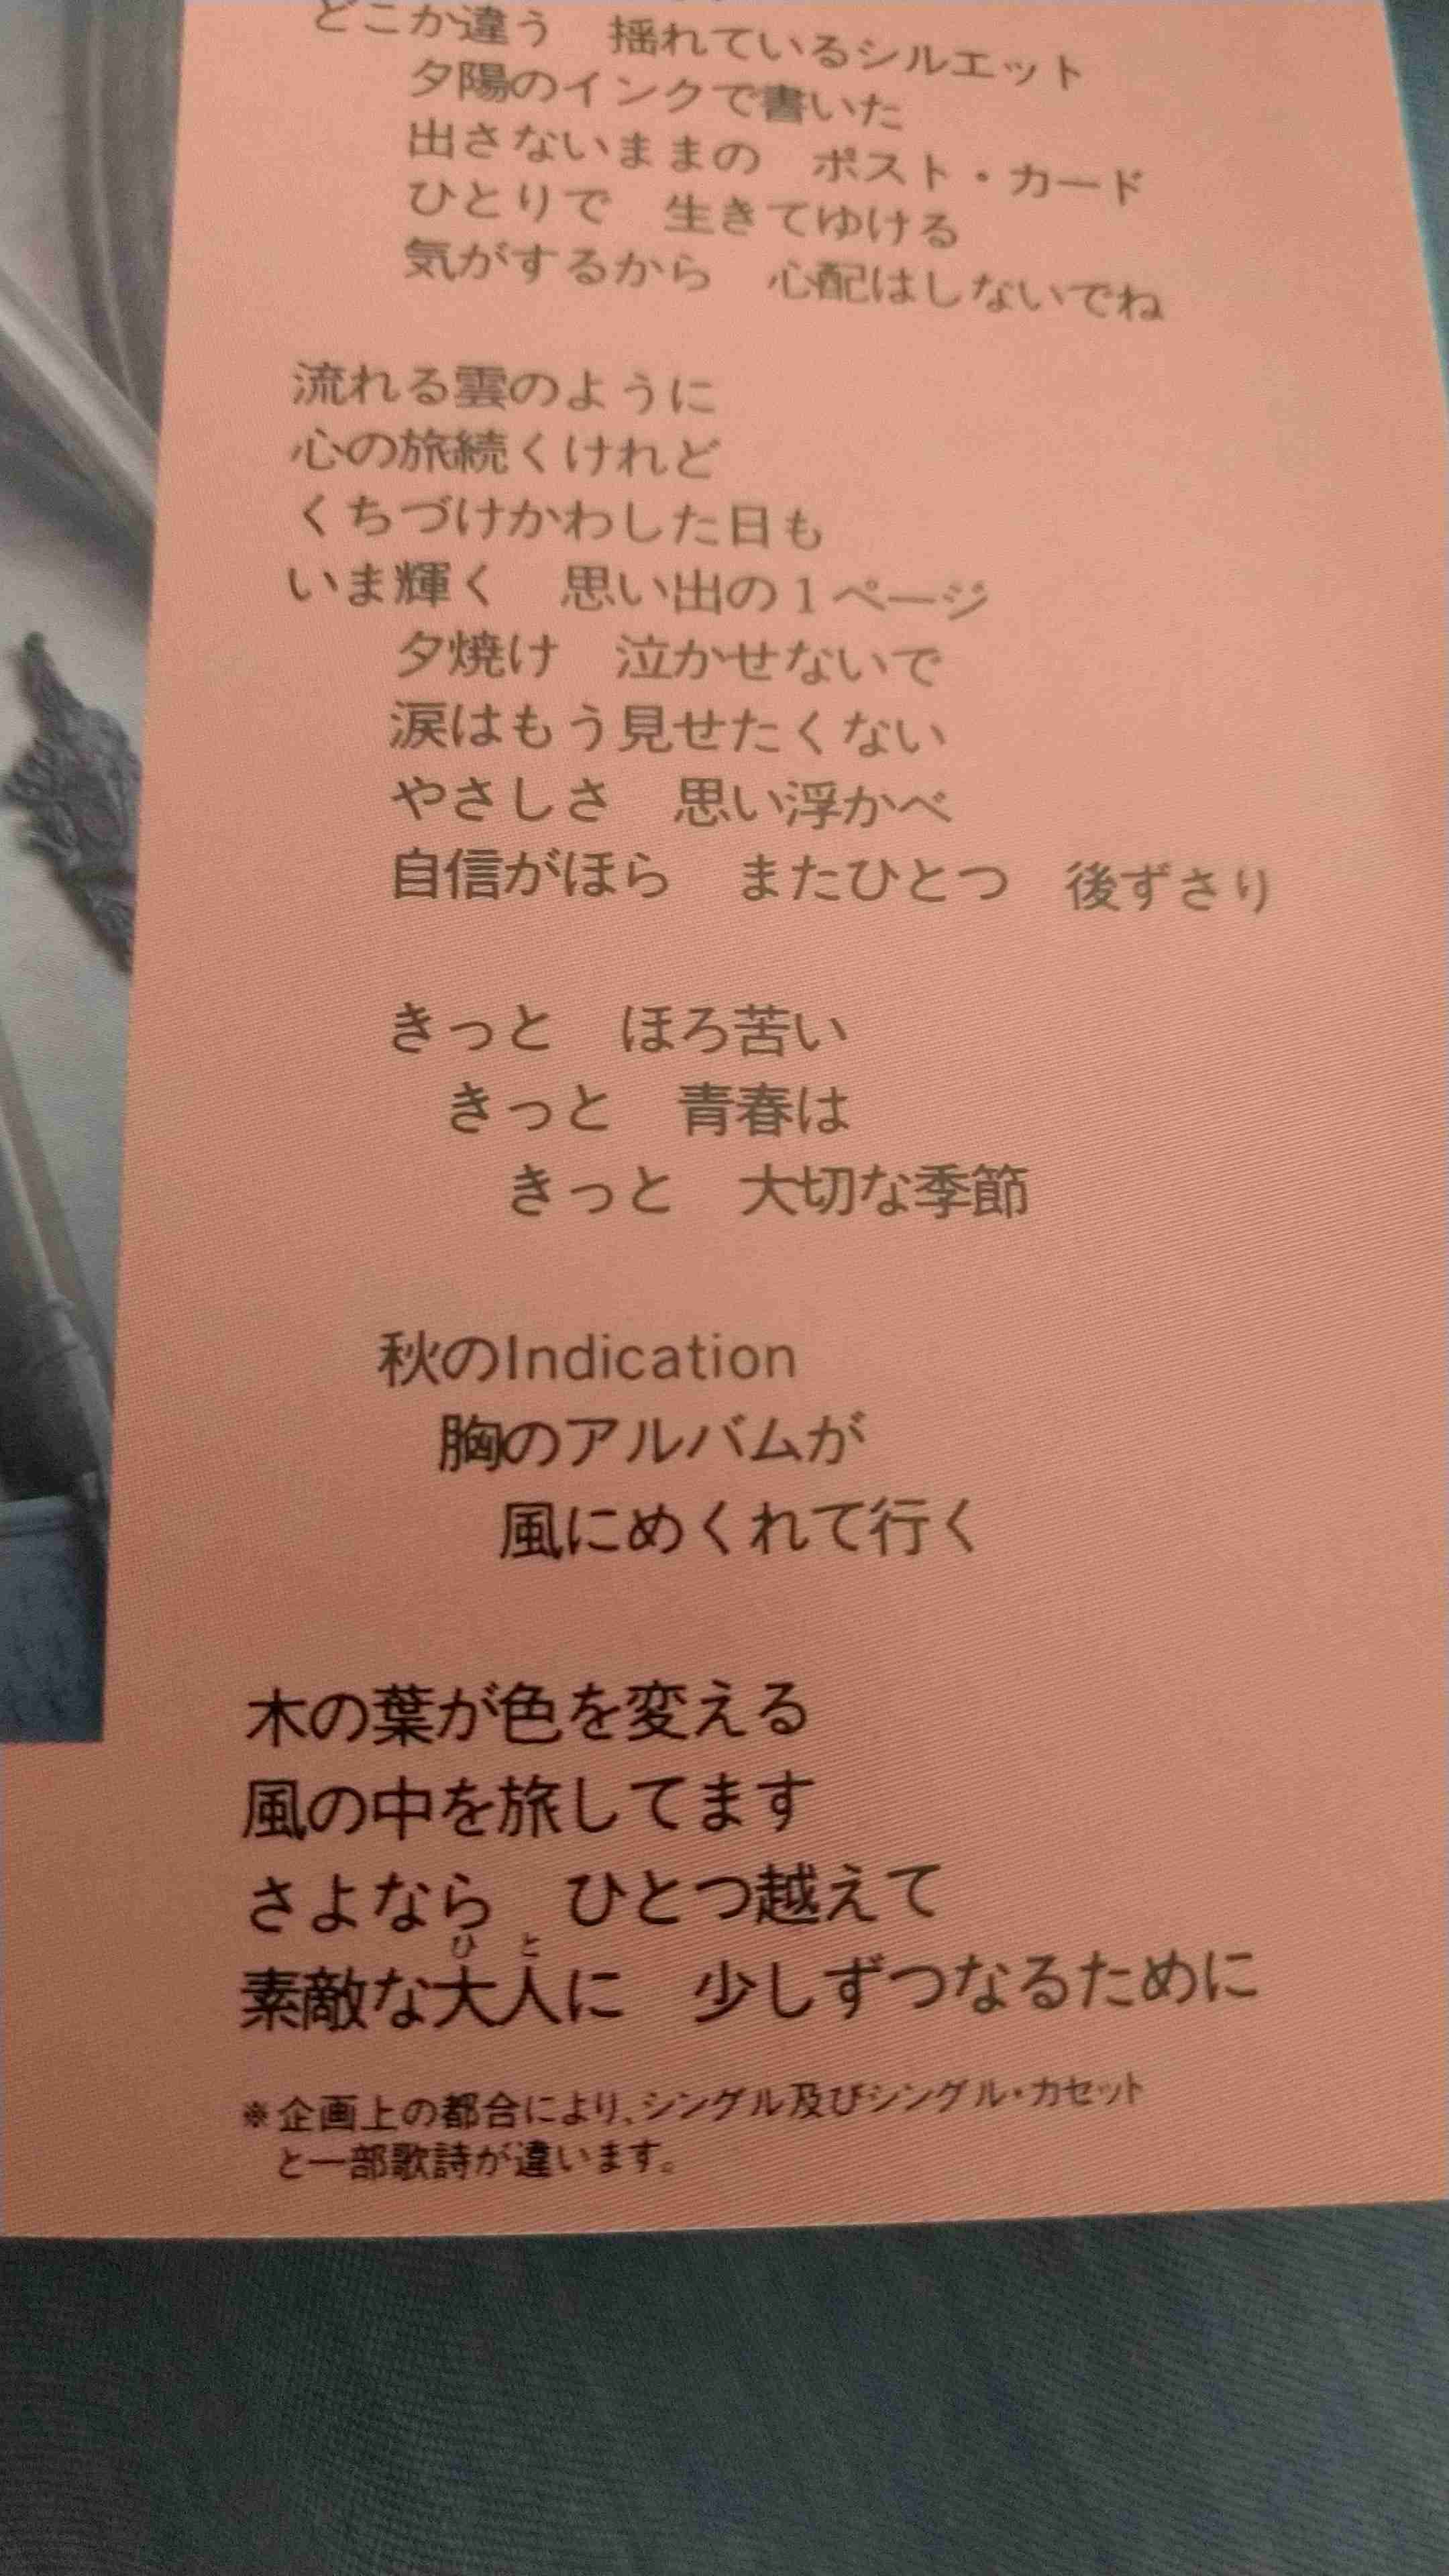 どこか違う　揺れているシルエット
夕陽のインクで書いた
出さないままの　ポスト・カード
ひとりで　生きてゆける
気がするから　心配はしないでね
流れる雲のように
心の旅続くけれど
くちづけかわした日も
いま輝く　思い出の1ページ
夕焼け　泣かせないで
涙はもう見せたくない
やさしさ　思い浮かべ
自信がほら　またひとつ　後ずさり
きっと　ほろ苦い
きっと　青春は
きっと　大切な季節
秋のIndication
胸のアルバムが
風にめくれて行く
木の葉が色を変える
風の中を旅してます
さよなら　ひとつ越えて
ひと
素敵な大人に　少しずつなるために
※企画上の都合により、シングル及びシングル・カセット
と一部歌詩が違います。